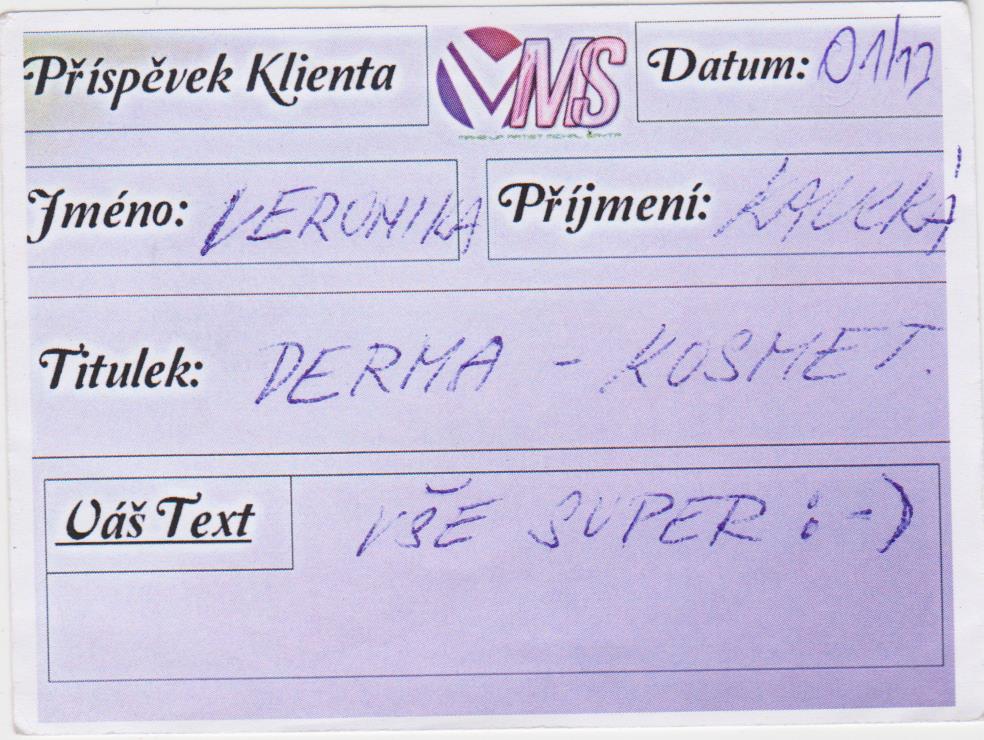 Příspěvek Klienta
MMS
MAKE-UP ARTIST MICHAL ŠAVTA
Datum: 01/12
Jméno: VERONIKA
Příjmení:
Titulek: DERMA - KOSMET.
Váš Text
VŠE SUPER :-)